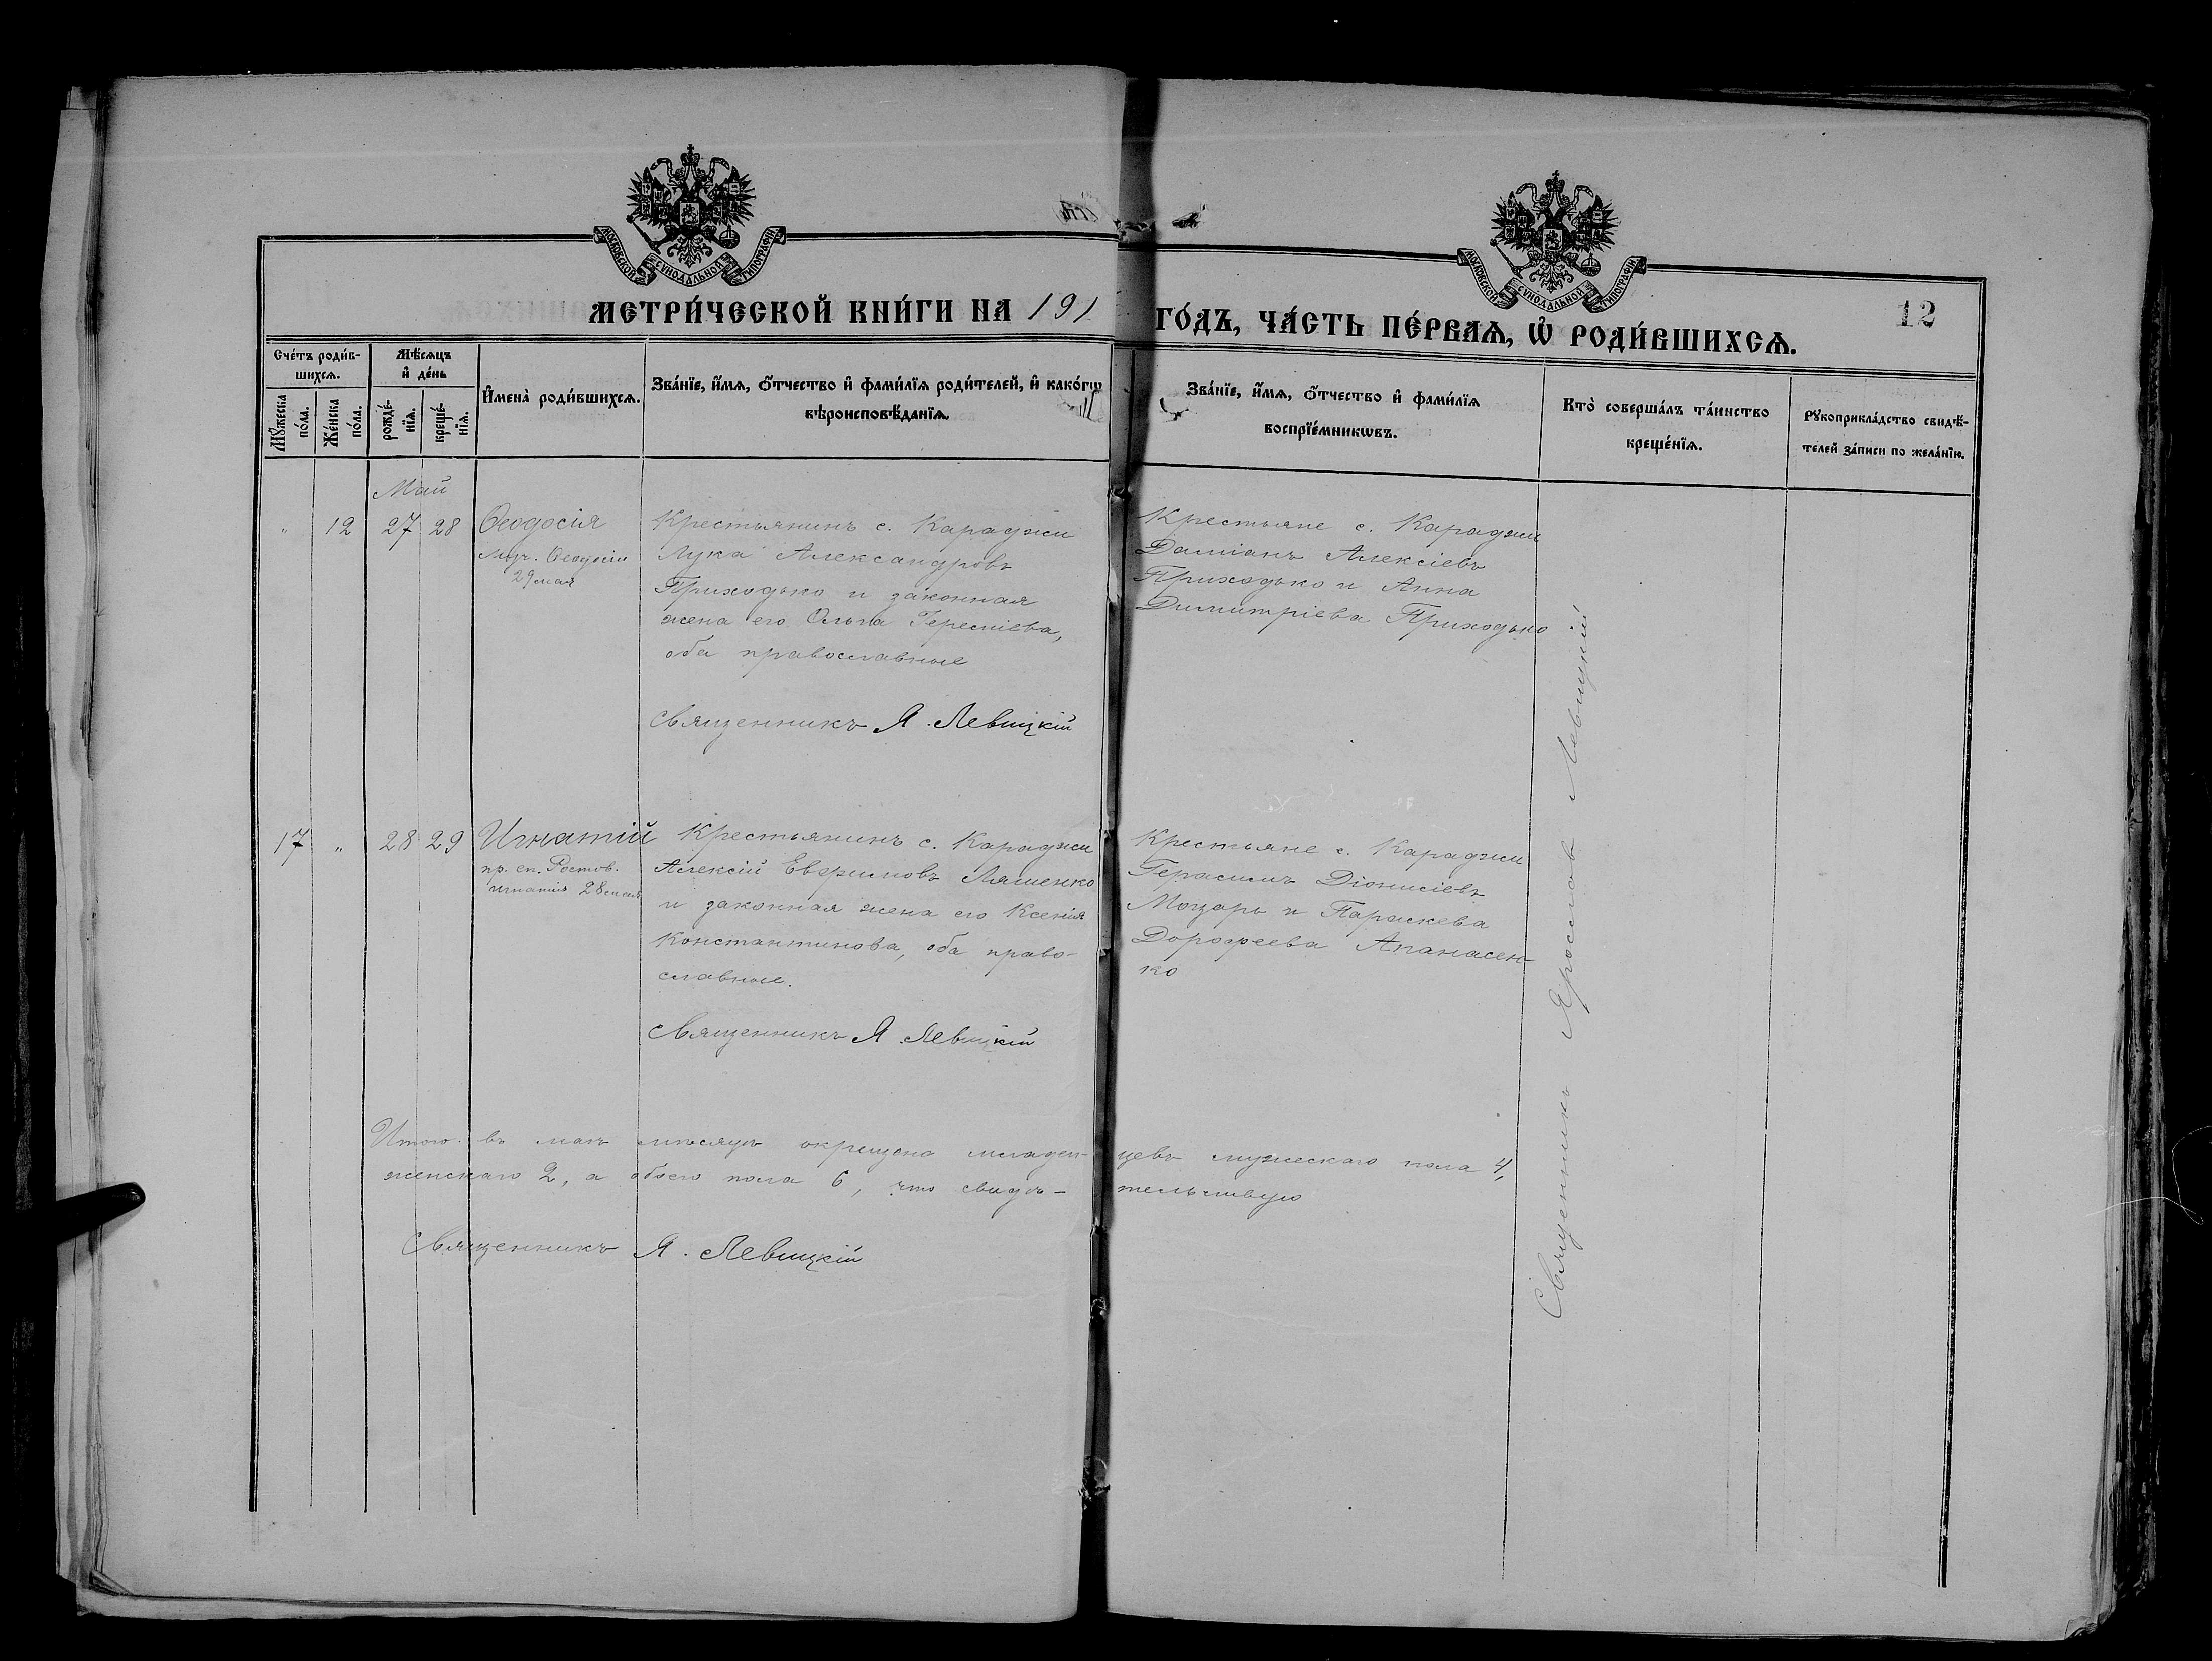 МОСКОВСКОЙ СѴНОДАЛЬНОЙ ТИПОГРАФІИ
МОСКОВСКОЙ СѴНОДАЛЬНОЙ ТИПОГРАФІИ
МЕТРИ́ЧЕСКОЙ КНИ́ГИ НА 191
ГО́ДЪ, ЧА́СТЬ ПЕ́РВАѦ, Ѡ҆ РОДИ́ВШИХСѦ.
12
Сче́тъ роди́в-
шихсѧ.
Мꙋ́жеска
по́ла.
Же́нска
по́ла.
Мѣ́сѧцъ
и҆ де́нь
рожде́-
нїѧ.
креще́-
нїѧ.
И҆мена̀ роди́вшихсѧ.
Зва́нїе, и҆́мѧ, ѻ҆́тчество и҆ фами́лїѧ роди́телей, и҆ како́гѡ
вѣроисповѣ́данїѧ.
Зва́нїе, и҆́мѧ, ѻ҆́тчество и҆ фами́лїѧ
воспрїе́мникѡвъ.
Кто̀ соверша́лъ та́инство
креще́нїѧ.
Рꙋкоприкла́дство свидѣ́-
телей за́писи по жела́нїю.
Май
" 12 27 28 Ѳеодосія
муч. Ѳеодосіи
29 мая
Крестьянинъ с. Караджи
Лука Александровъ
Приходько и законная
жена его Ольга
оба православные
Священникъ Я. Левицкій
Крестьяне с. Караджи
Даміанъ Алексіевъ
Приходько и Анна
Димитріева Приходько
17 " 28 29 Игнатій
пр. еп. Ростов.
Игнатія 28 мая
Крестьянинъ с. Караджи
Алексій Евфимовъ Ляшенко
и законная жена его Ксенія
Константинова, оба право-
славные.
Священникъ Я. Левицкій
Крестьяне с. Караджи
Герасимъ Діонисіевъ
Моцарь и Параскева
Дорофеева Апанасен-
ко
Священникъ Ярослав Левицкій
Итого въ маѣ мѣсяцѣ окрещено младен-цевъ мужескаго пола 4,
женскаго 2, а обоего пола 6, что свидѣ-тельствую
Священникъ Я. Левицкій